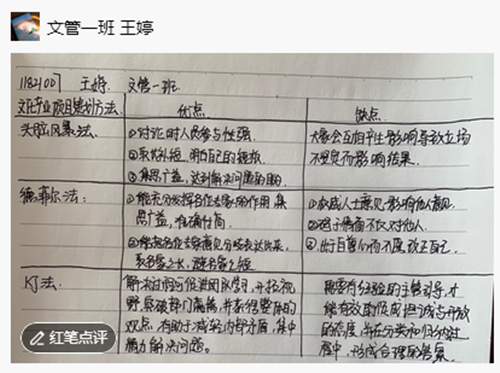 文管一班 王婷
11821007 王婷 文管一班
文化产业项目策划方法 优点 缺点
头脑风暴法
①讨论时人员参与性强
②取长补短,明白自己的
③集思广益,达到解决问题的目的
大家会互相产生影响导致立场
不坚定而影响结果
德菲尔法
①能充分发挥各位专家的作用,集
思广益,准确性高
②能把各位专家意见分歧表达出来,
取各家之长,避各家之短
①权威人士意见影响他人意见
②碍于情面不
③出于自尊心而不愿改正自己
KJ法
解决问题可促进团队学习,开拓视
野,突破部门藩篱,并获得整体的
观点,有助于减轻内部矛盾,集中
精力解决问题。
需要有经验的主管引导,才
能有效
的态度,并在分类和归纳过
程中,形成合理的答案
红笔点评